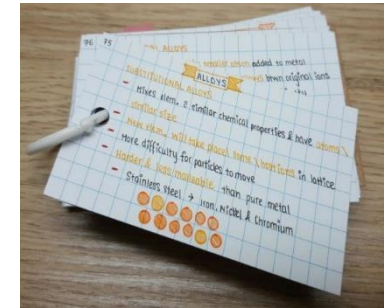 76 75
ALLOYS
smaller atom added to metal
btwn original ions
ALLOYS
SUBSTITUTIONAL ALLOYS
- Mixes elem. & similar chemical properties & have atoms
similar size
- New elem. will take place in lattice
- More difficulty for particles to move
- Harder & less malleable than pure metal
- Stainless Steel → Iron, Nickel & Chromium